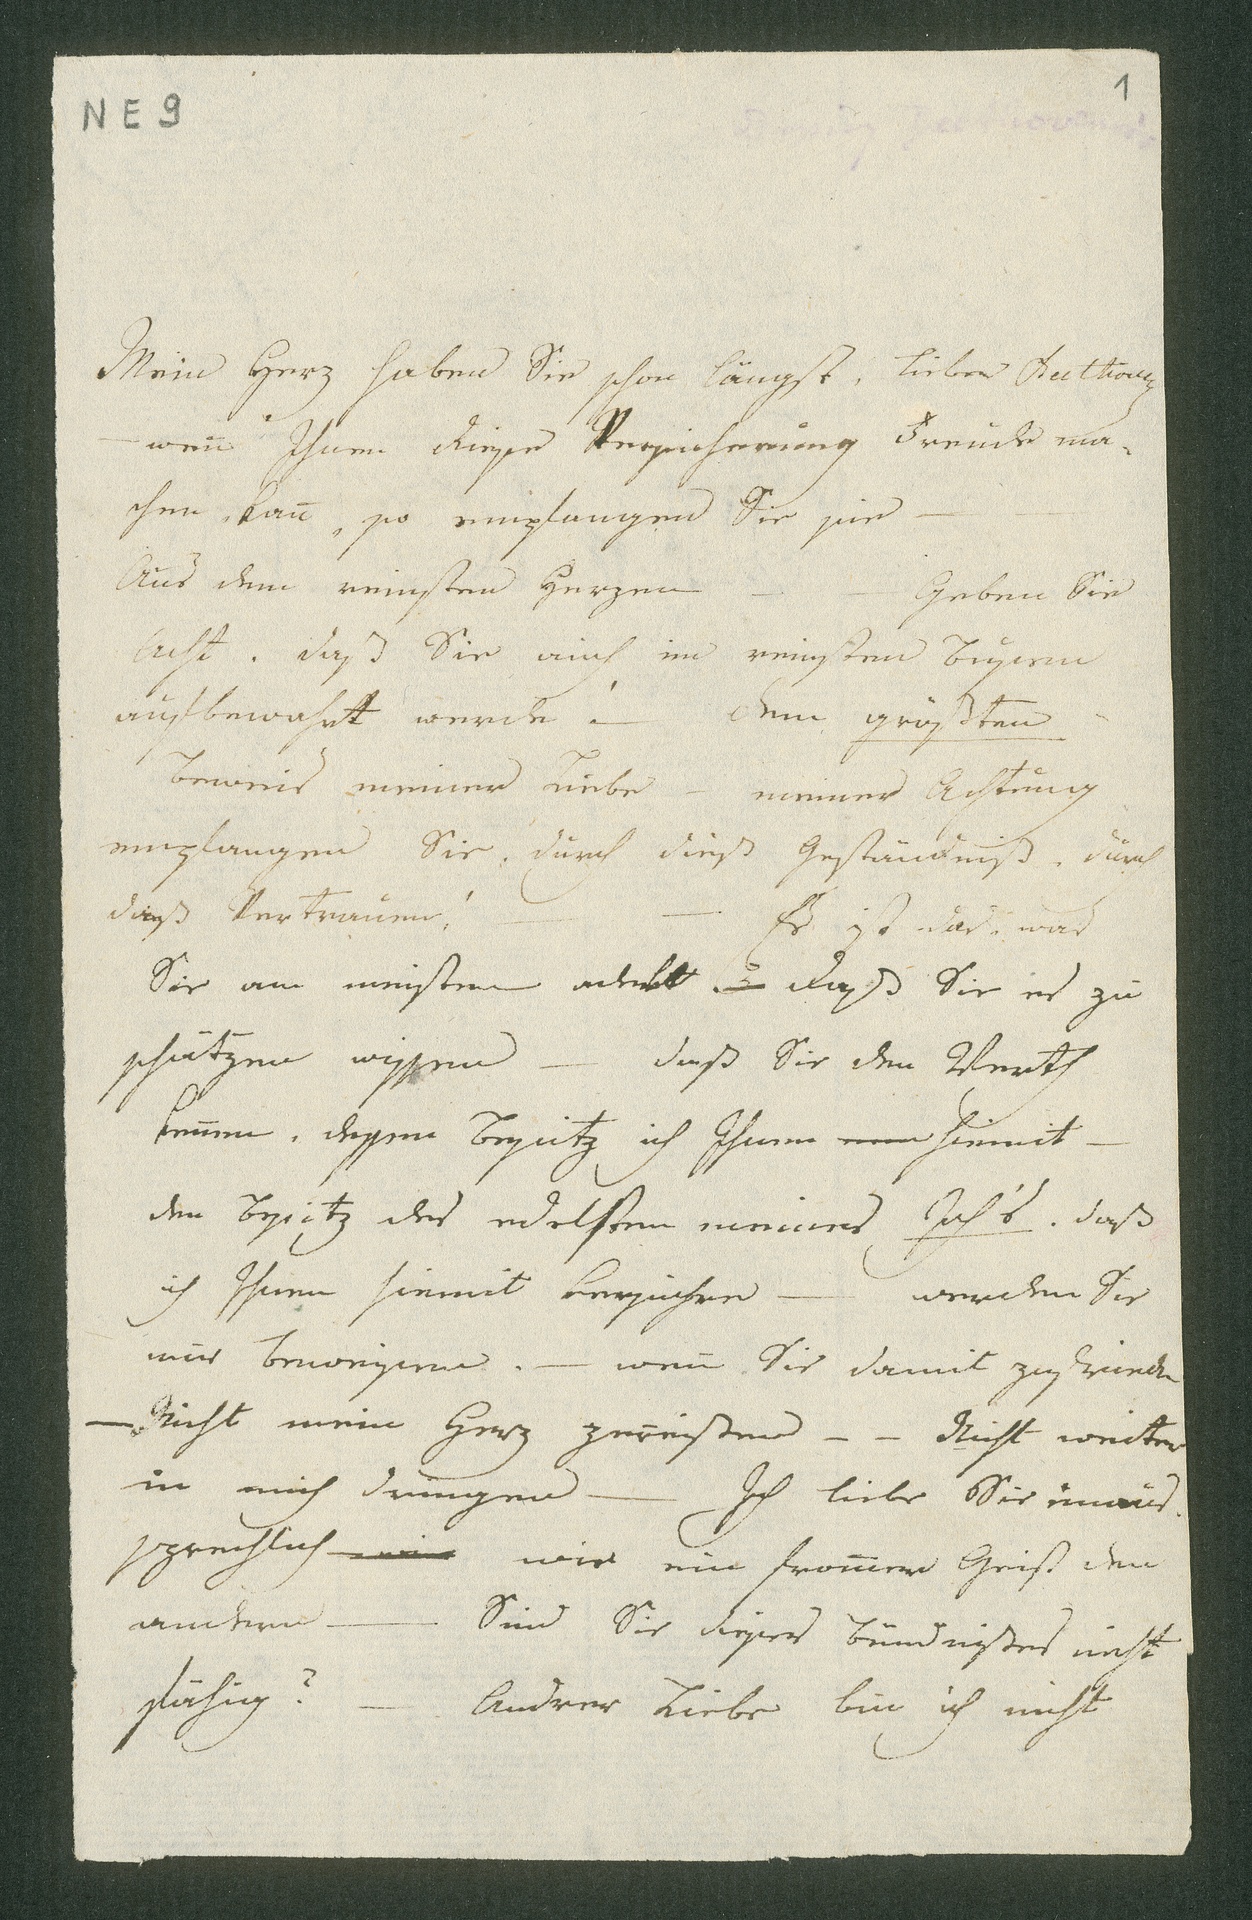 NE9
1
Mein Herz haben Sie schon längst, lieber Beethoven
– wen̄ Ihnen diese Versicherung Freude ma-
chen kan̄, so empfangen Sie sie —
Aus dem reinsten Herzen – – Geben Sie
Acht, daß Sie auch im reinsten Busen
aufbewahrt werde! – den größten
Beweis meiner Liebe – meiner Achtung
empfangen Sie, durch dieß Geständniß, durch
daß Vertrauen! — — Es ist das, was
Sie am meisten adelt – daß Sie es zu
schätzen wissen — daß Sie den Werth
ken̄en, dessen Besitz ich Ihnen hiemit –
den Besitz des edelsten meines Ich's, daß
ich Ihnen hiemit versichre — werden Sie
mir beweisen, — wen̄ Sie damit zufrieden
— Nicht mein Herz zerreißen – – Nicht weiter
in mich dringen — Ich liebe Sie unaus-
sprechlich wie ein from̄er Geist den
andern — Sind Sie dieses Bündnißes nicht
fähig? – Andrer Liebe bin ich nicht